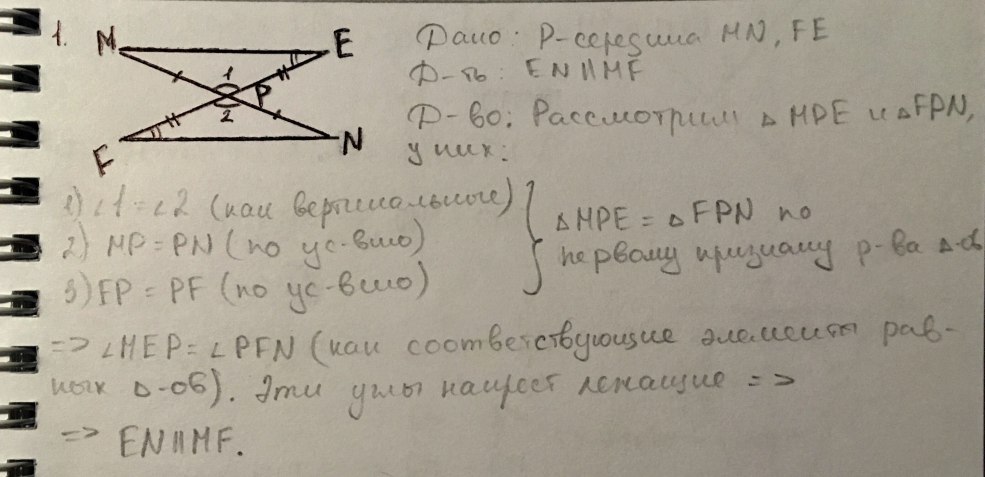 1.
M E
1
P
2
F N
Дано: P-середина MN, FE
Д-ть: EN||MF
Д-во: Рассмотрим △ MPE и △FPN,
у них:
1) ∠1=∠2 (как вертикальные)
2) MP=PN (по ус-вию)
3) EP=PF (по ус-вию)
△MPE = △FPN по
первому признаку р-ва △-ов
=> ∠MEP=∠PFN (как соответствующие элементы рав-
ных △-ов). Эти углы накрест лежащие =>
=> EN||MF.